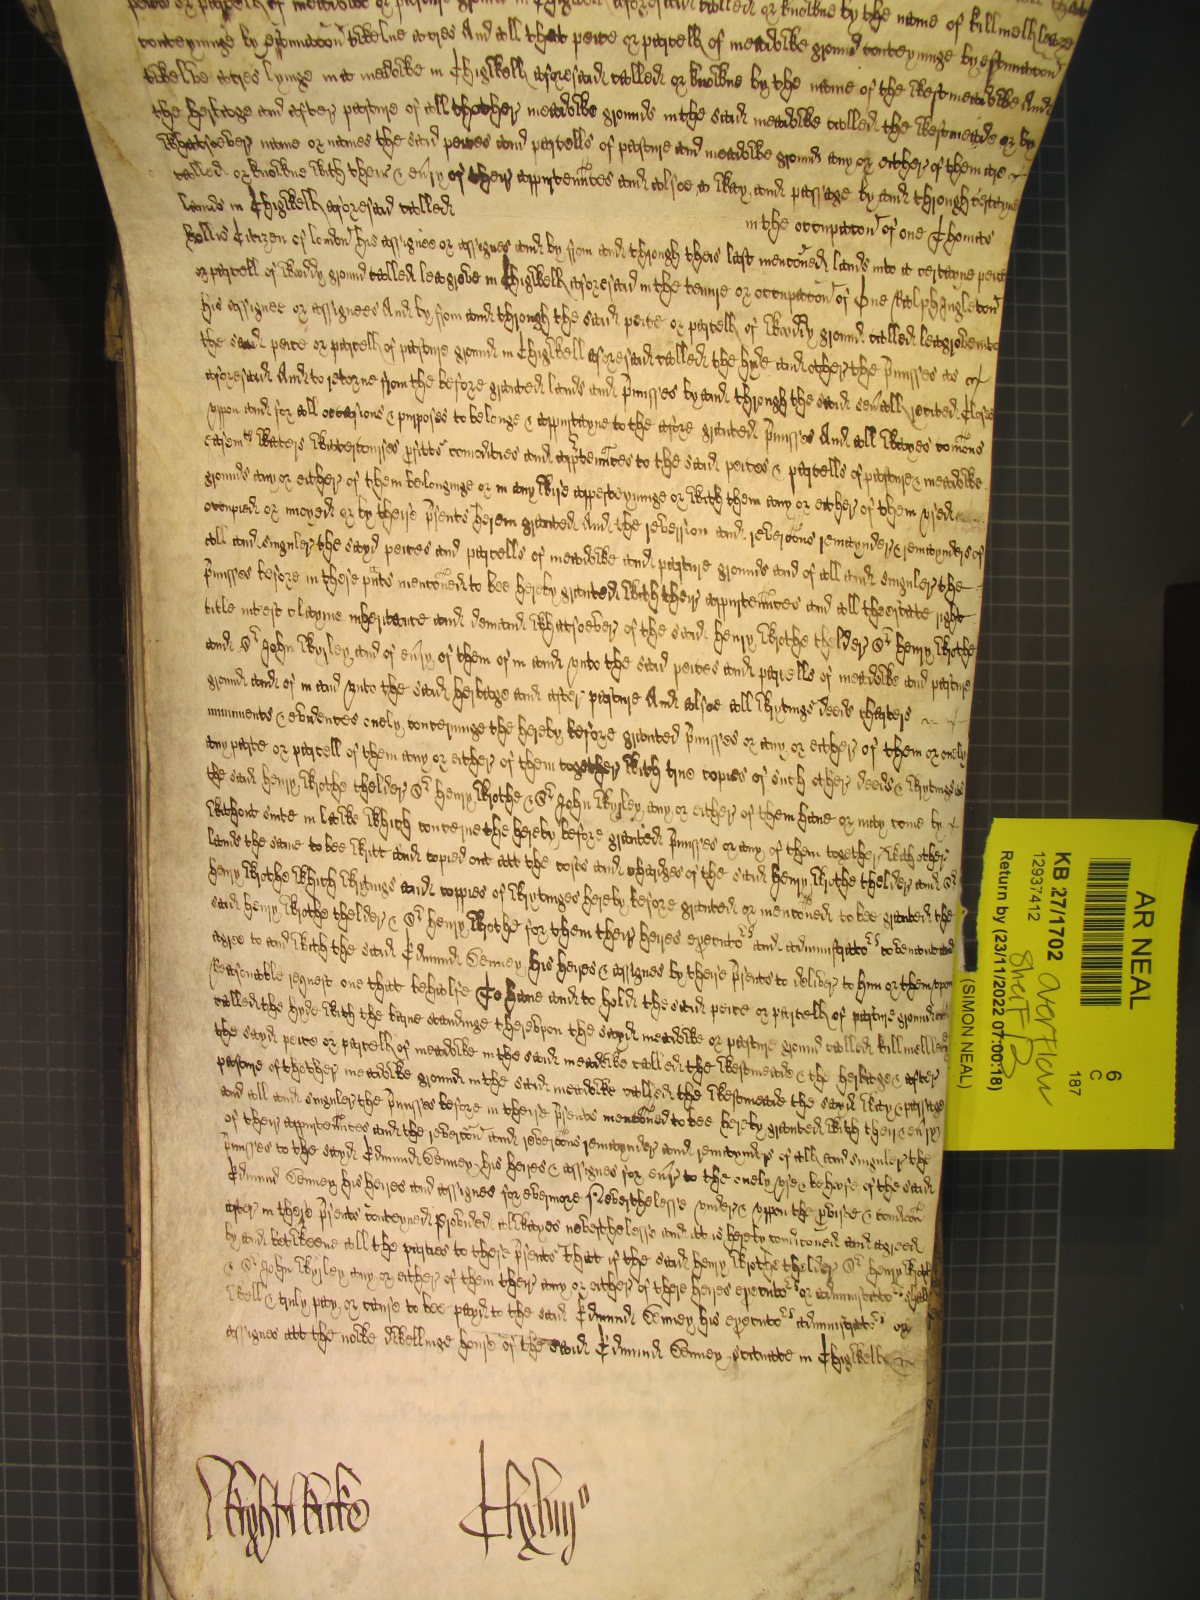 peece or parcell of meadowe or pasture ground in Chigwell aforesaid called or knowne by the name of killmell leaze
conteyninge by estimacon twelve acres And all that peece or parcell of meadowe ground conteyninge by estimacon
twelve acres lyinge in a meadowe in Chigwell aforesaid called or knowne by the name of the Westmeadowe And
the herbage and after pasture of all thother meadowe grounds in the said meadowe called the Westmeade or by
Whatsoever name or names the said peeces and parcells of pasture and meadowe grounds any or either of them are
called or knowne With their & every of their appurtennces and alsoe a Way and passage by and through certayne
lands in Chigwell aforesaid called in the occupacon of one Thomas
hollis Citizen of london his assignee or assignes and by from and through theis last menconed lands into a certayne peece
or parcell of Woddy ground called leagrove in Chigwell aforesaid in the tenure or occupacon of One Ralph Ingleton
his assignee or assignees And by from and through the said peece or parcell of Woddy ground called leagrove into
the said peece or parcell of pasture ground in Chigwell aforesaid called the hyde and other the pmisses as
aforesaid And to retorne from the before granted lands and pmisses by and through the said sevall recited Closes
vppon and for all occasions & purposes to belonge & appurtayne to the afore granted pmisses And all Wayes comons
easemts Waters Watercourses pfitts comodities and apptennces to the said peeces & parcells of pasture & meadowe
grounds any or either of them belonginge or in any Wise apperteyninge or With them any or either of them vsed
occupied or inioyed or by theise psents herein granted And the reversion and revercons remaynder & remaynders of
all and singuler the sayd peeces and parcells of meadowe and pasture grounds and of all and singuler the
pmisses before in these pnts menconed to bee hereby granted With their appurtennces and all the estate right
title interest clayme inheritance and demand Whatsoever of the said henry Wrothe thelder Sr henry Wrothe
and Sr John Wyrley and of every of them of in and vnto the said peeces and parcells of meadowe and pasture
ground and of in and vnto the said herbage and after pasture And alsoe all Wrytings deeds charters
miniments & evidences onely concerninge the hereby before granted pmisses or any or either of them or onely
any parte or parcell of them any or either of them together With true copies of such other deeds & Wrytings as
the said henry Wrothe thelder Sr henry Wrothe & Sr John Wyrley any or either of them have or may come by
Without suite in lawe Which concerne the hereby before granted pmisses or any of them together With other
lands the same to bee Writt and copied out att the costs and chardges of the said henry Wrothe thelder and Sr
henry Wrothe Which Wrytings and coppies of Wrytinges hereby before granted or menconed to bee granted the
said henry Wrothe thelder & Sr henry Wrothe for them their heires executors and administrators covenant and
agree to and With the said Edmund Denney his heires & assignes by theise psents to deliver to him or them vpon
Reasonable request one that behalfe To have and to hold the said peece or parcell of pasture ground
called the hyde With the barne standinge therevpon the sayd meadowe or pasture ground called killmell leaze
the sayd peece or parcell of meadowe in the said meadowe called the Westmeade & the herbage & after
pasture of thother meadowe ground in the said meadowe called the Westmeade the sayd Way & passage
and all and singuler the pmisses before in theise psents menconed to bee hereby granted With their & every
of their appurtennces and the revercon and revercons remaynder and remaynders of all and singuler the
pmisses to the sayd Edmund Denney his heires & assignes for ever to the onely vse & behoofe of the said
Edmund Denney his heires and assignes for evermore Neverthelesse vnder & vppon the pvisoe & condicon
after in these psents conteyned Provided allwayes neverthelesse and itt is hereby condiconed and agreed
by and betweene all the parties to these psents that if the said henry Wrothe thelder Sr henry Wrothe
& Sr John Wyrley any or either of them their any or either of there heires executors or administrators shall
Well & truly pay or cause to bee payd to the said Edmund Denney his executors administrators or
assignes att the nowe dwellinge house of the said Edmund Denney scituate in Chigwell
Wightwicke
AR NEAL
6
C
187
KB 27/1702 Overflow
12937412
Return by (23/11/2022 07:00:18)
(SIMON NEAL)